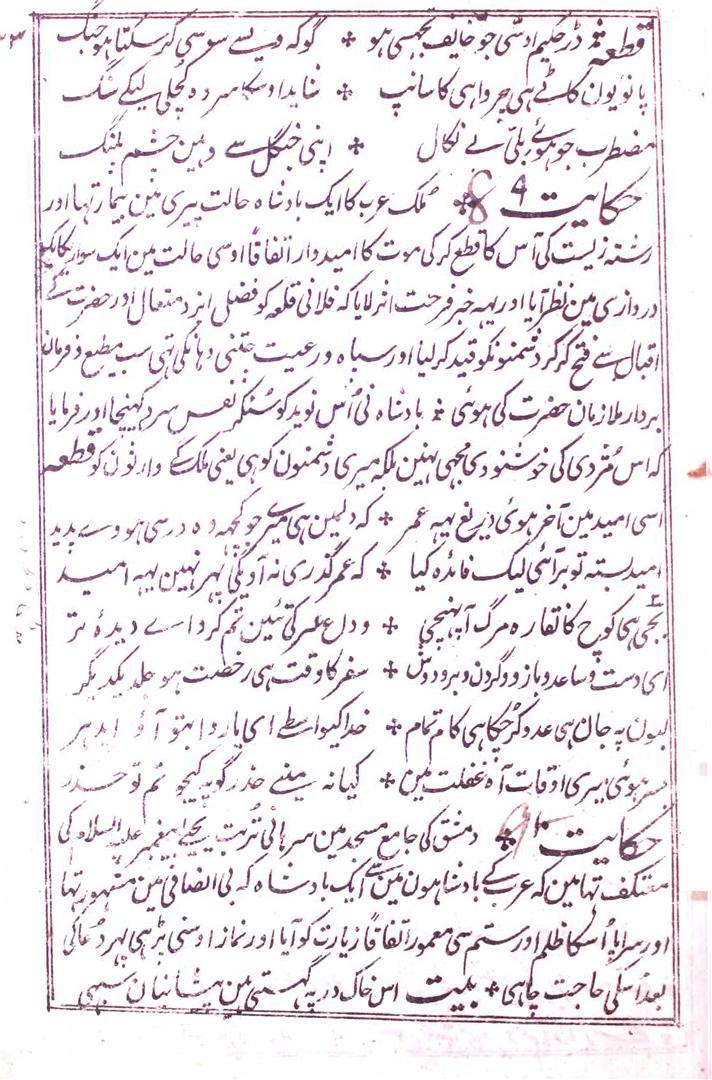 قطعہ ٭ ڈر حکیم اوسی جو خایف تجھسی ہو ٭ گو کہ ویسے سو سی کر سکتا ہو جنگ
پانو یون کاٹے ہی چرواہی کا سانپ ٭ شاید اوسکا سر وہ کچلی لیکے سنگ
مضطرب جو ہوئے بلی لے نکال ٭ اپنی چنگل سے وہین چشم پلنگ
حکایت ۹ ٭ ملک عرب کا ایک بادشاہ حالت پیری مین بیمار تھا اور
رشتہ زیست کی آس کا قطع کر کی موت کا امیدوار اتفاقاً اوسی حالت مین ایک سوار یکایک
دروازی مین نظر آیا اور یہہ خبر فرحت اثر لایا کہ فلانی قلعہ کو فضل ایزد متعال اور حضرت کے
اقبال سے فتح کر کر دشمنونکو قید کر لیا اور سپاہ و رعیت جتنی وہانکی تہی سب مطیع و فرمان
بردار ملازمان حضرت کی ہوئی ٭ بادشاہ نی اُس نوید کو سُنکر نفس سرد کہینچا اور فرمایا
کہ اس مژدی کی خوشنودی مجہی نہین بلکہ میری دشمنون کو ہی یعنی ملک کے وارثون کو قطعہ
اسی امید مین آخر ہوئی دریغ یہہ عمر ٭ کہ دلمین ہی میرے جو کچھہ وہ درسی ہووے پدید
امید بستہ تو بر آئی لیک فائدہ کیا ٭ کہ عمر گذری نہ آویگی پہر نہین یہہ امید
بجی ہی کوچ کا نقارہ مرگ آ پہنچی ٭ وداع سر کی تئین تم کرو اے دیدۂ تر
ای دست و ساعد و بازو و گردن و بر و دوش ٭ سفر کا وقت ہی رخصت ہو جلد یکدیگر
لبون پہ جان ہی عدو کر چکا ہی کام تمام ٭ خدا کیواسطے ای یارو اب تو آؤ ایدہر
بسر ہوئی میری اوقات آہ غفلت مین ٭ کیا نہ مینے حذر گو پہ کیجو تم تو حذر
حکایت ۱۰ ٭ دمشق کی جامع مسجد مین سرہانی تربت یحیی پیغمبر علیہ السلام کی
معتکف تہا مین کہ عرب کے بادشاہون مین سے ایک بادشاہ کہ بی انصافی مین مشہور تہا
اور سراپا اُسکا ظلم اور ستم سی معمور اتفاقاً زیارت کو آیا اور نماز اوسنی پڑہی پہر دعا کی
بعد اُسکی حاجت چاہی ٭ بیت اس خاک در پہ گہستی ہین پیشانیان سبہی